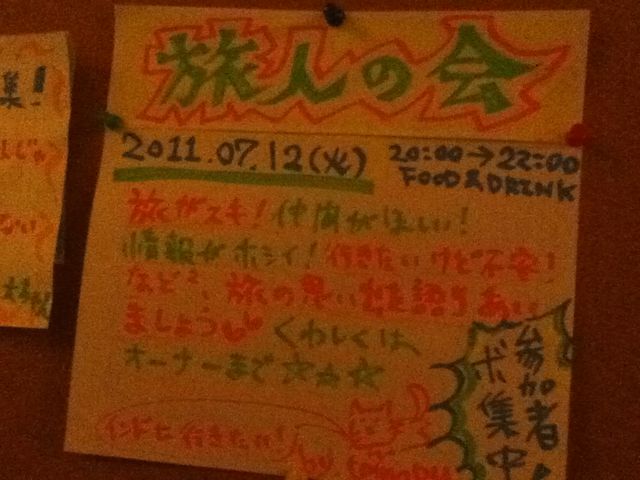 旅人の会
2011.07.12(火)
20:00→22:00
FOOD&DRINK
旅がスキ!仲間がほしい!
情報がホシイ!行きたいけど不安!
などなど、旅の思い出を語りあい
ましょう♥♥くわしくは、
オーナーまで☆☆☆
インドに行きたい!
by
参加者
ボ集中!
集!
ない